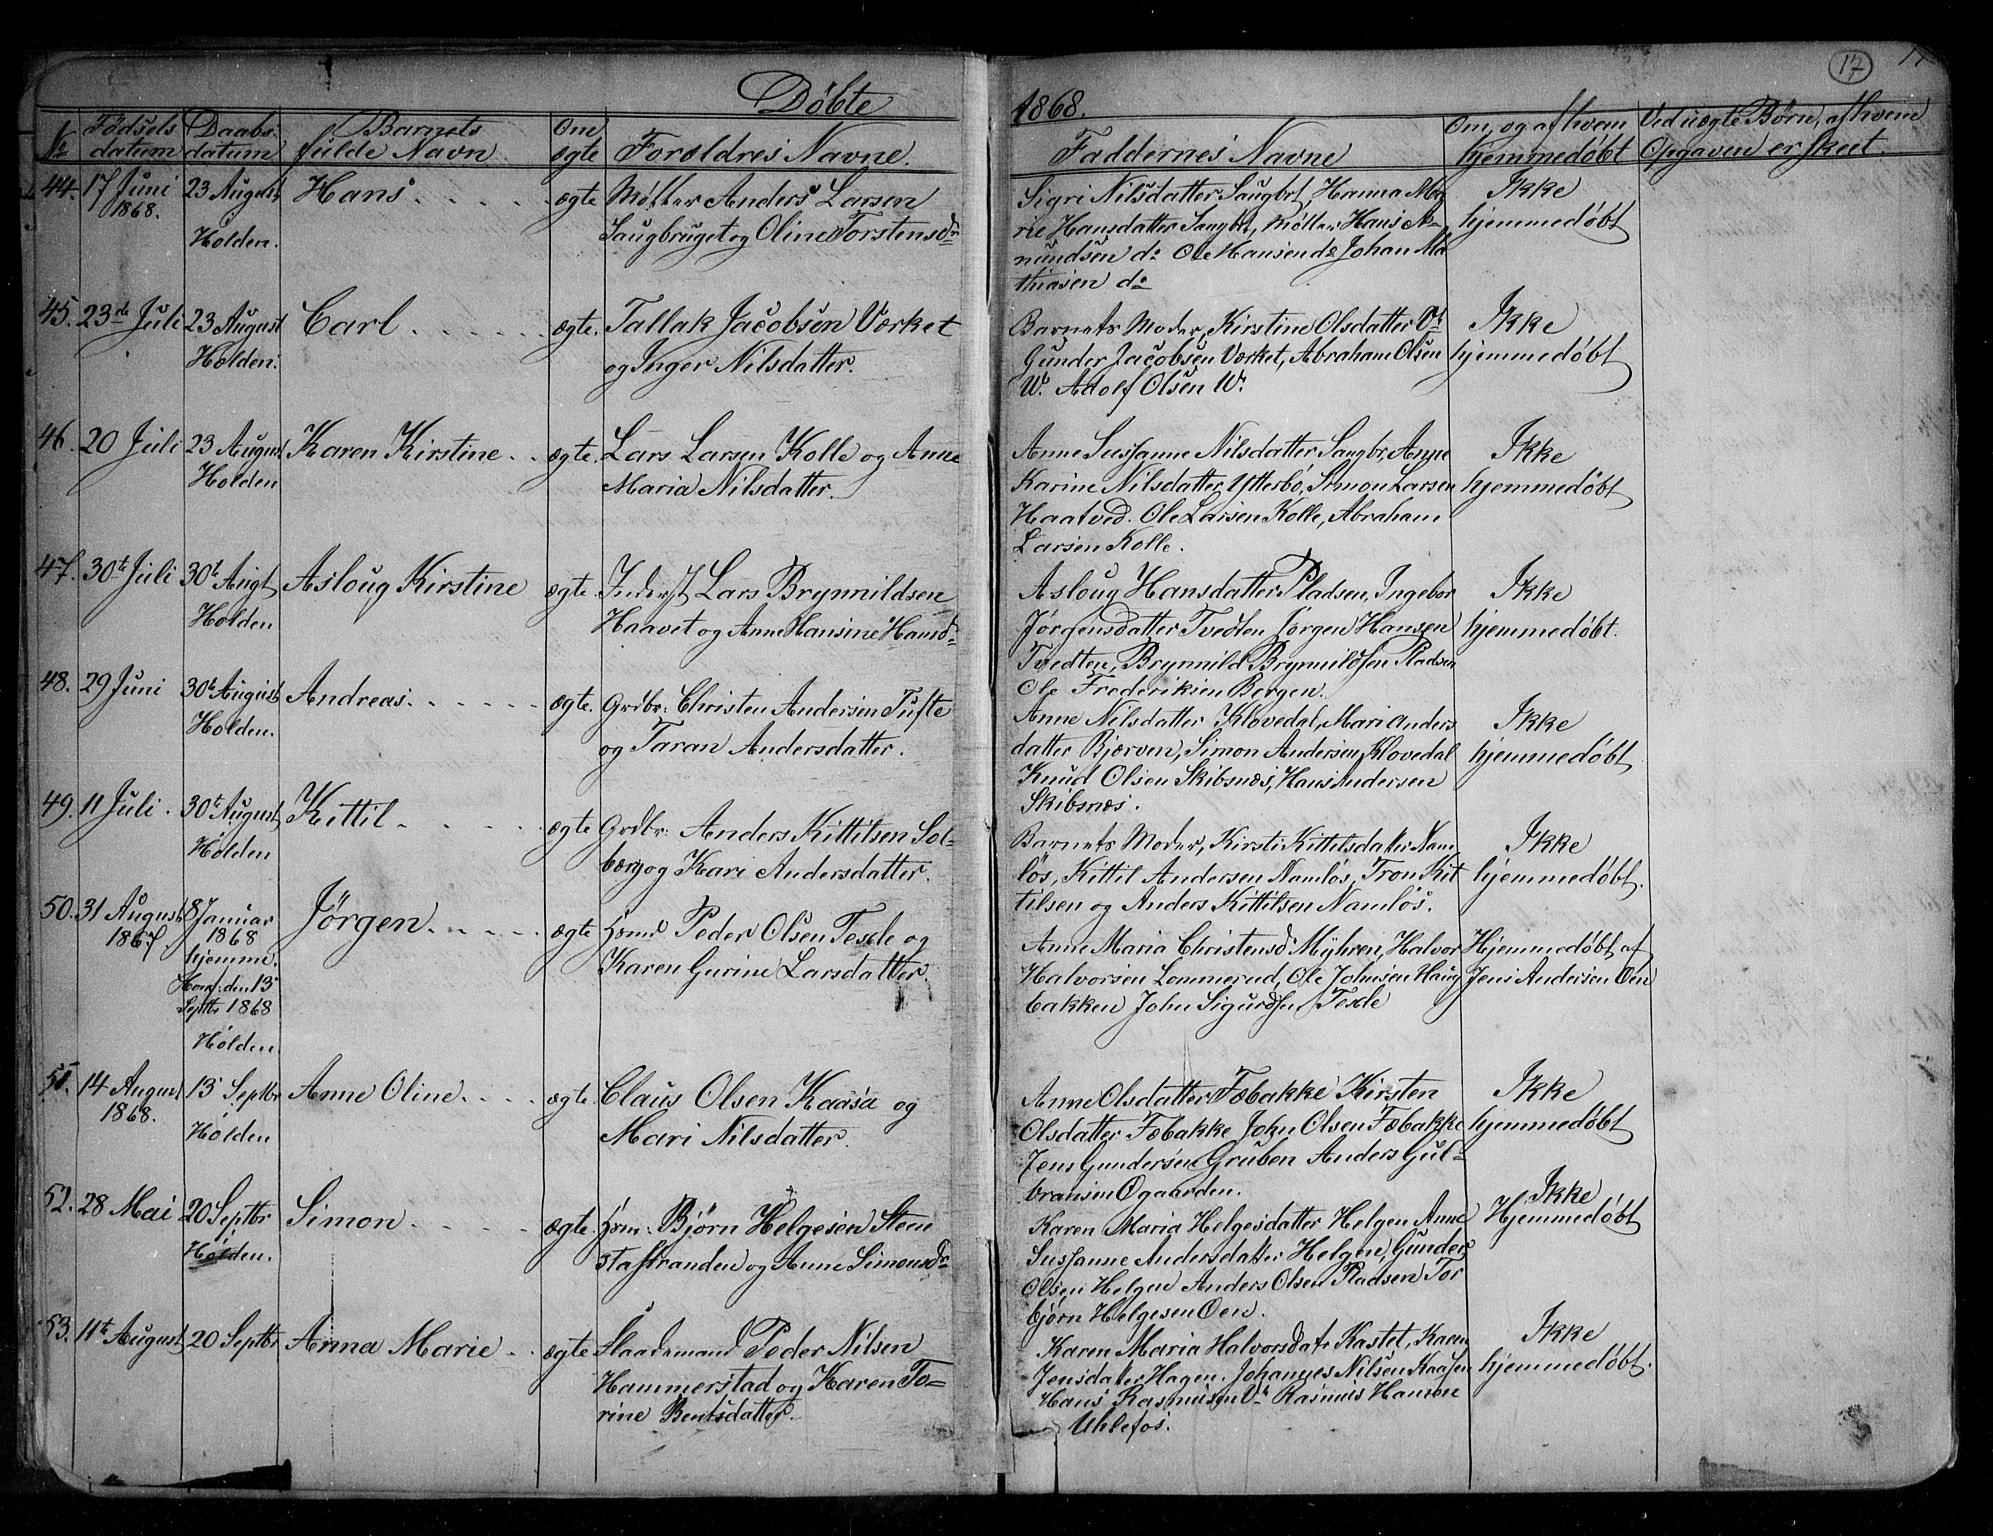 Døbte
1868.
17
№
Fødsels datum
Daabs datum
Barnets fulde Navn
Om ægte
Forældres Navne.
Faddernes Navne
Om, og af hvem hjemmedøbt
Ved uægte Børn, af hvem Opgaven er skeet.
44. 17 Juni 23 August Hans. ægte Møller Anders Larsen
1868. Holden. Saugbruget og Oline Torstensdr
Sigri Nilsdatter Saugbrt, Hanna Ma
rie Hansdatter Saugbrt, Møller Hans A-
mundsen do Ole Hansen do Johan Ma
thiasen do
Ikke
hjemmedøbt
45. 23de Juli 23 August Carl ægte. Tallak Jacobsen Værket
Holden. og Inger Nilsdatter.
Barnets Moder, Kirstine Olsdatter Vt
Gunder Jacobsen Værket, Abraham Olsen
W. Adolf Olsen W.
Ikke
hjemmedøbt
46. 20 Juli 23 August Karen Kirstine ægte. Lars Larsen Kolle og Anne
Holden Maria Nilsdatter.
Anne Susanne Nilsdatter Saugbr, Anne
Karine Nilsdatter Ytterbö, Simon Larsen
Haatved. Ole Larsen Kolle, Abraham
Larsen Kolle.
Ikke
hjemmedøbt
47. 30t Juli 30t Augt Asloug Kirstine ægte Inderst Lars Brynnildsen
Holden Haavet og Anne Hansine Hansdr
Asloug Hansdatter Pladsen, Ingebor
Jørgensdatter Tvedten Jørgen Hansen
Tvedten, Brynnild Brynnildsen Pladsen
Ole Frederiksen Bergen.
Ikke
hjemmedøbt.
48. 29 Juni 30t August Andreas. ægte. Grdbr: Christen Andersen Tufte
Holden. og Taran Andersdatter.
Anne Nilsdatter Klovedal, Mari Anders
datter Bjerven, Simon Andersen Klovedal
Knud Olsen Skibsnæs, Hans Andersen
Skibsnæs.
Ikke
hjemmedøbt
49. 11 Juli. 30t August Kittil ægte Grdbr: Anders Kittilsen Sol-
Holden berg og Kari Andersdatter.
Barnets Moder, Kirsti Kittilsdatter Nam
lös, Kittil Andersen Namlös, Tron Kit
tilsen og Anders Kittilsen Namlös.
Ikke
hjemmedøbt.
50. 31 August 8 Januar Jørgen ægte Hsmd Peder Olsen Tesdle og
1867 1868 Karen Gurine Larsdatter.
hjemme.
den 13
Septbr 1868
Holden.
Anne Maria Christensd. Myhren, Halvor
Halvorsen Lommerud, Ole Johnsen Haug
bakken John Sigurdsen
Hjemmedøbt af
Jens Andersen Oen
51. 14 August 13 Septbr Anne Oline. ægte. Claus Olsen Kaasa og
1868. Holden Mari Nilsdatter.
Anne Olsdatter Fæbakke Kirsten
Olsdatter Fæbakke John Olsen Fæbakke
Jens Gundersen Gruben Anders Gul-
bransen Ogaarden.
Ikke
hjemmedøbt
52. 28 Mai 20 Septbr Simon ægte Hsm: Bjørn Helgesen Sten
Holden. stastranden og Anne Simonsdr
Karen Maria Helgesdatter Helgen Anne
Susanne Andersdatter Helgen, Gunder
Olsen Helgen Anders Olsen Pladsen Tor
bjørn Helgesen Oen.
Ikke
Hjemmedøbt
53. 11t August 20 Septbr Anna Marie ægte Gaardmand Peder Nilsen
Hammerstad og Karen To-
rine Bentsdatter.
Karen Maria Halvorsdatr Kastet, Karen
Jensdatter Hagen. Johannes Nilsen Kaasen
Hans Rasmusen Vt Rasmus Hansen
Uhlefos.
Ikke
hjemmedøbt.